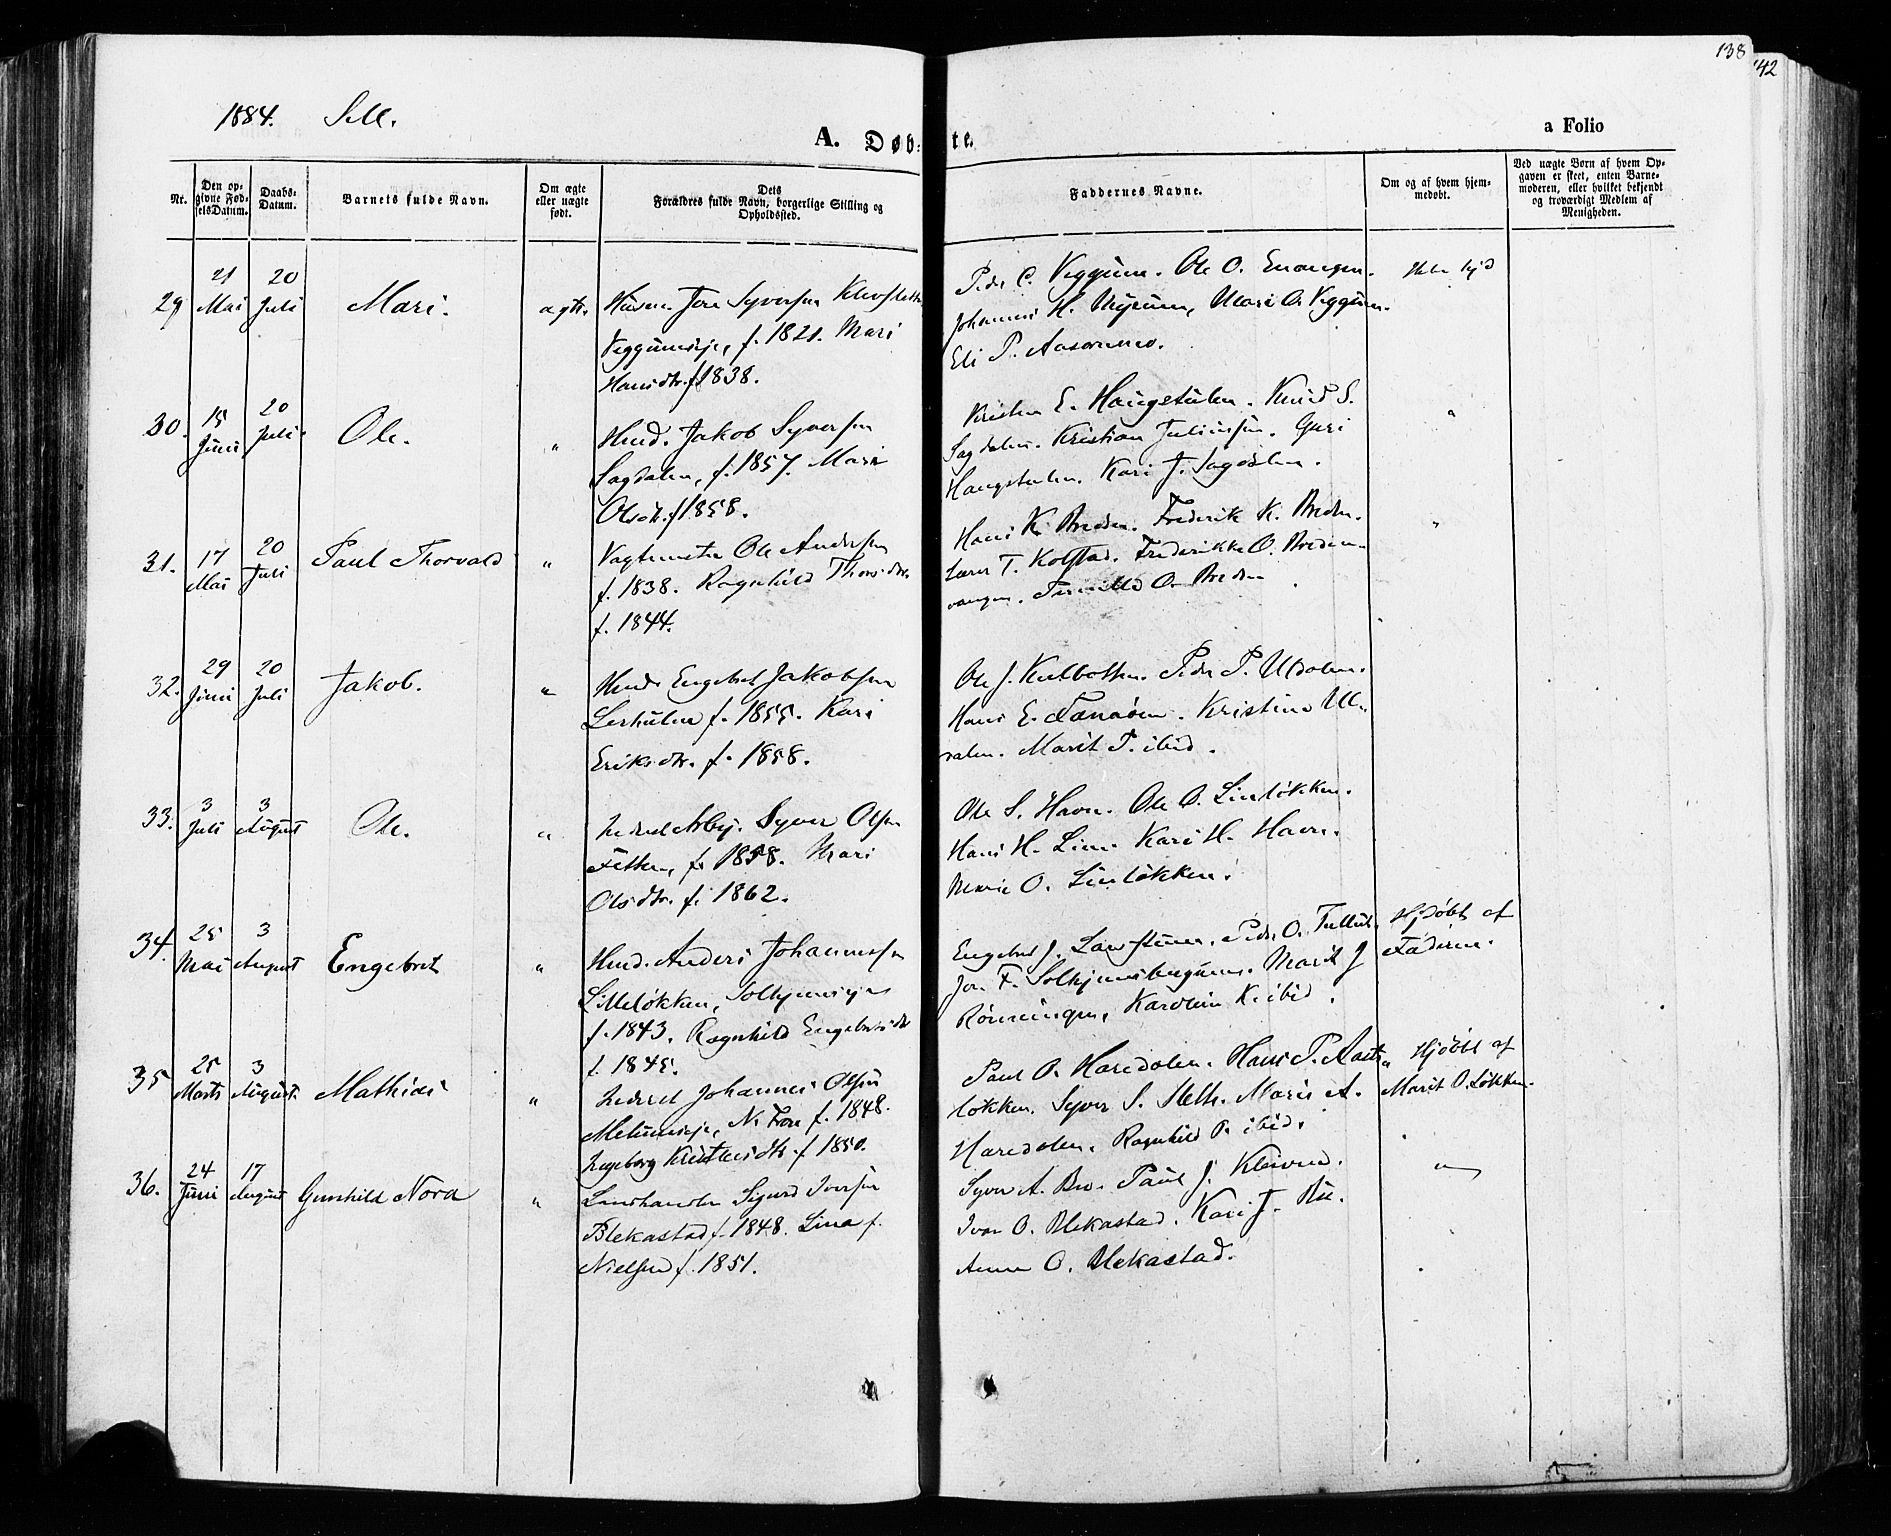 138
142
1884. Sell.
A. Døb-te.
a Folio
Nr.
Den op-
givne Fød-
selsDatum.
Daabs-
Datum.
Barnets fulde Navn.
Om ægte
eller uægte
født.
Dets
Forældres fulde Navn, borgerlige Stilling og
Opholdssted.
Faddernes Navne.
Om og af hvem hjem-
medøbt.
Ved uægte Børn af hvem Op-
gaven er skeet, enten Barne-
moderen, eller hvilket bekjendt
og troværdigt Medlem af
Menigheden.
29 21 Mai 20 Juli Mari. ægte.
Husm. Tore Syversen
Veggumseje, f. 1821. Mari
Hansdtr. f. 1838.
Peder C. Veggum. Ole O.
Johannes H. Myrum, Mari O. Veggum.
Eli P.
30. 15 Juni 20 Juli Ole. "
Husmd. Jakob Syversen
Sagdalen, f. 1857. Mari
Olsdtr. f. 1858.
Kristen E. Haugstulen. Knud S.
Sagdalen. Kristian Juliussen. Guri
Haugstulen. Kari J. Sagdalen.
"
31. 17 Mai 20 Juli Paul Thorvald "
Vogtermester Ole Andersen
f. 1838. Ragnhild Thorsdtr.
f. 1844.
Hans K. Breden. Frederik K. Breden.
Lars T. Kolstad. Frederikke O. Breden-
vangen. Pernille O. Breden
"
32. 29 Juni 20 Juli Jakob. "
Husmd. Engebret Jakobsen
Lerhulen f. 1855. Kari
Eriksdtr. f. 1858.
Ole J. Peder P. Uldalen.
Hans E. Kristine Ul-
dalen. Marit P. ibid.
33. 3 Juli 3 August Ole. "
Inderst Arbej. Syver Olsen
f. 1858. Mari
Olsdtr. f. 1862.
Ole S. Havn. Ole O. Linløkken.
Hans H. Lien. Kari H. Havn.
Marie O. Linløkken.
34. 25 Mai 3 August Engebret "
Husmd. Anders Johannessen
Lilleløkken, Solhjemseje
f. 1843. Ragnhild Engebretsdtr.
f. 1845.
Engebret J. Peder O.
Jon F. Marit J
Rønningen, Karoline K. ibid.
Hjdøbt af
Faderen.
35 25 Marts 3 August. Mathias "
Inderst Johannes Olsen
f. 1848.
Ingeborg f. 1850.
Paul O. Haredalen. Hans P.
løkken. Syver S. Marie A.
Haredalen. Ragnhild P. ibid.
" Hjdøbt af
Marit O. Løkken.
36. 24 Juni 17 August Gunhild Nora "
Landhandler Sigurd Iversen
Blekastad f. 1848. Lina f.
Nielsen f. 1851.
Syver A. Bu. Paul J. Kleiven.
Ivar O. Blekastad. Kari J. Bu.
Anne O. Blekastad.
"